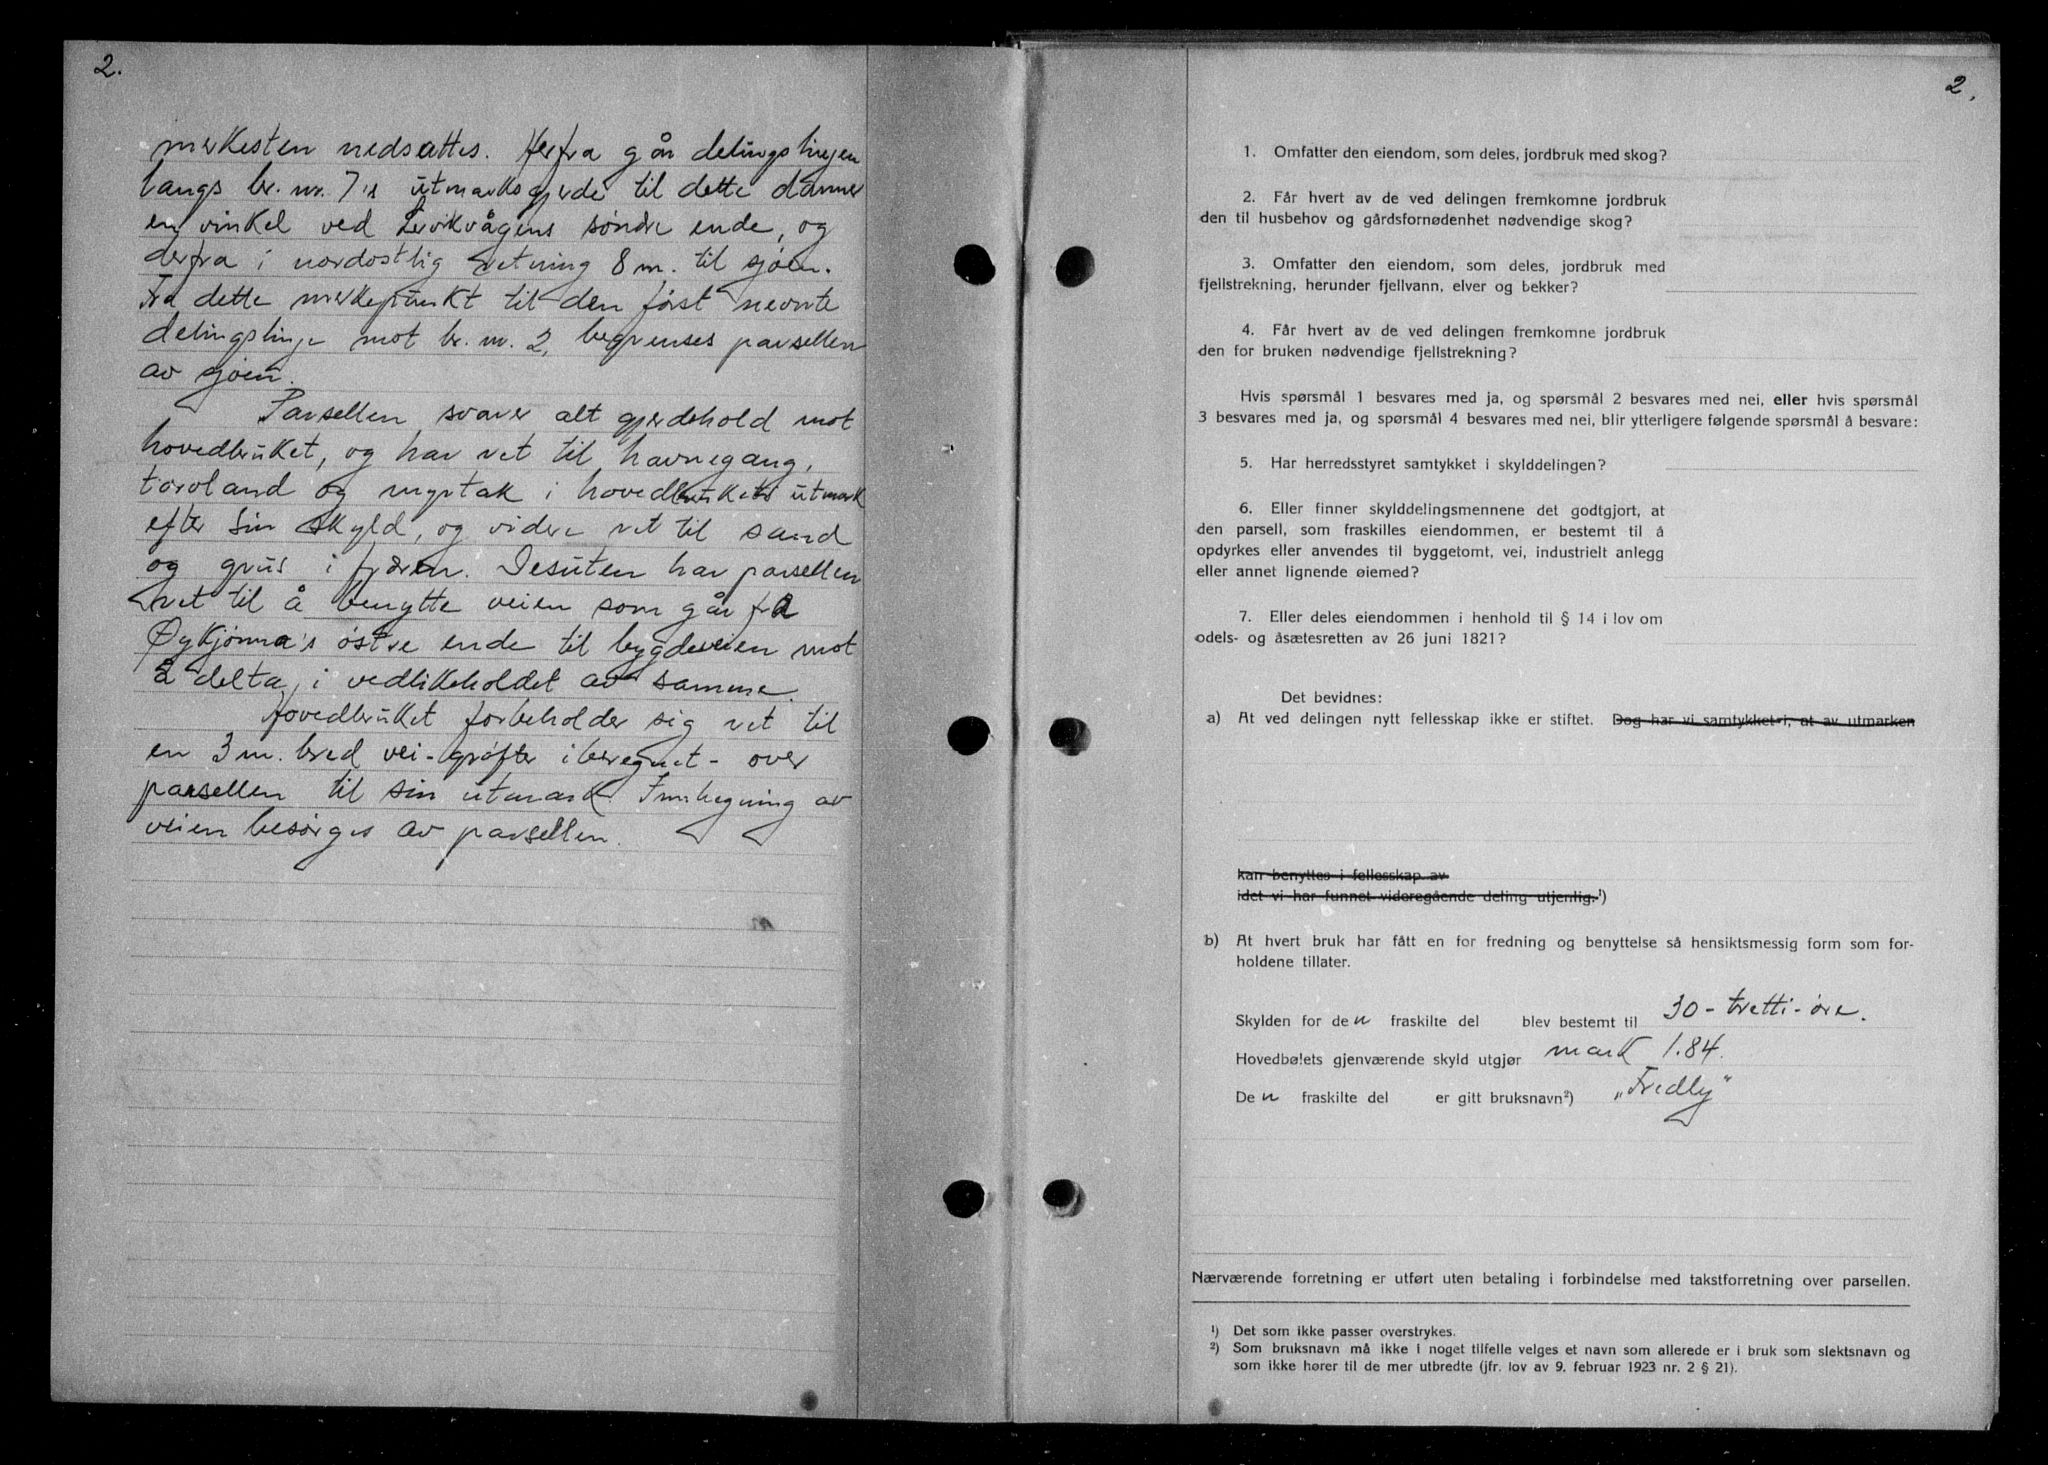 2.
merkesten nedsattes. Herfra går delingslinjen
langs br. nr. 7's utmarksgjerde til dette danner
en vinkel ved Lervikvågens søndre ende, og
derfra i nordostlig retning 8 m. til sjøen.
Fra dette merkepunkt til den først nevnte
delingslinje mot br. nr. 2, begrenses parsellen
av sjøen.
Parsellen svarer alt gjerdehold mot
hovedbruket, og har ret til havnegang,
torvland og myrtak i hovedbrukets utmark
efter sin skyld, og videre ret til sand
og grus i fjæren. Desuten har parsellen
ret til å benytte veien som går fra
Øykjønna's østre ende til bygdeveien mot
å delta i vedlikeholdet av samme.
Hovedbruket forbeholder sig ret til
en 3 m. bred vei - grøfter iberegnet - over
parsellen til sin utmark. Innhegning av
veien besørges av parsellen.
2.
1. Omfatter den eiendom, som deles, jordbruk med skog?
2. Får hvert av de ved delingen fremkomne jordbruk
den til husbehov og gårdsfornødenhet nødvendige skog?
3. Omfatter den eiendom, som deles, jordbruk med
fjellstrekning, herunder fjellvann, elver og bekker?
4. Får hvert av de ved delingen fremkomne jordbruk
den for bruken nødvendige fjellstrekning?
Hvis spørsmål 1 besvares med ja, og spørsmål 2 besvares med nei, eller hvis spørsmål
3 besvares med ja, og spørsmål 4 besvares med nei, blir ytterligere følgende spørsmål å besvare:
5. Har herredsstyret samtykket i skylddelingen?
6. Eller finner skylddelingsmennene det godtgjort, at
den parsell, som fraskilles eiendommen, er bestemt til å
opdyrkes eller anvendes til byggetomt, vei, industrielt anlegg
eller annet lignende øiemed?
7. Eller deles eiendommen i henhold til § 14 i lov om
odels- og åsætesretten av 26 juni 1821?
Det bevidnes:
a) At ved delingen nytt fellesskap ikke er stiftet. Dog har vi samtykket i, at av utmarken
kan benyttes i fellesskap av
idet vi har funnet videregående deling utjenlig.¹)
b) At hvert bruk har fått en for fredning og benyttelse så hensiktsmessig form som for-
holdene tillater.
Skylden for den fraskilte del blev bestemt til 30 - tretti - øre.
Hovedbølets gjenværende skyld utgjør mark 1.84.
Den fraskilte del er gitt bruksnavn²) „Fredly"
Nærværende forretning er utført uten betaling i forbindelse med takstforretning over parsellen.
¹) Det som ikke passer overstrykes.
²) Som bruksnavn må ikke i noget tilfelle velges et navn som allerede er i bruk som slektsnavn og
som ikke hører til de mer utbredte (jfr. lov av 9. februar 1923 nr. 2 § 21).